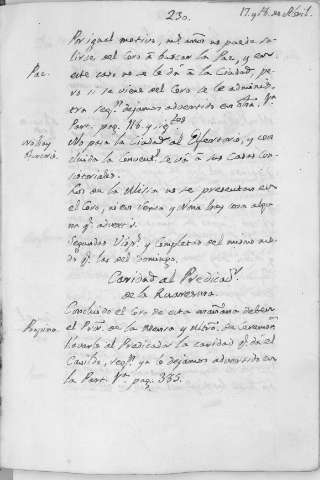 230.
17. y 18. de Abril.
Por igual motivo, no puede sa-
lirse del Coro á buscar la Paz, y en
Paz.
este caso no se le dá á la Ciudad, pe-
ro si se viene del Coro se le adminis-
tra segn. dejamos advertido en dha. 1a.
Part. pag. 116. y sigtes.
No hay
No pasa la Ciudad al, y con-
cluida la se vá á sus Casas Con-
sistoriales.
Los de la Missa no se presentan en
el Coro, ni en Tercia y Nona hay cosa algu-
na qe. advertir.
Segundas Visps. y Completas del mismo mo-
do qe. las del Domingo.
Caridad al Predicadr.
de la Quaresma.
Concluido el Coro de esta mañana deben
el Prior. de la y Mtro. de Ceremons.
llevarle al Predicador la caridad qe. dá el
Cavildo, segn. ya lo dejamos advertido en
la Part. 1a. pag. 335.